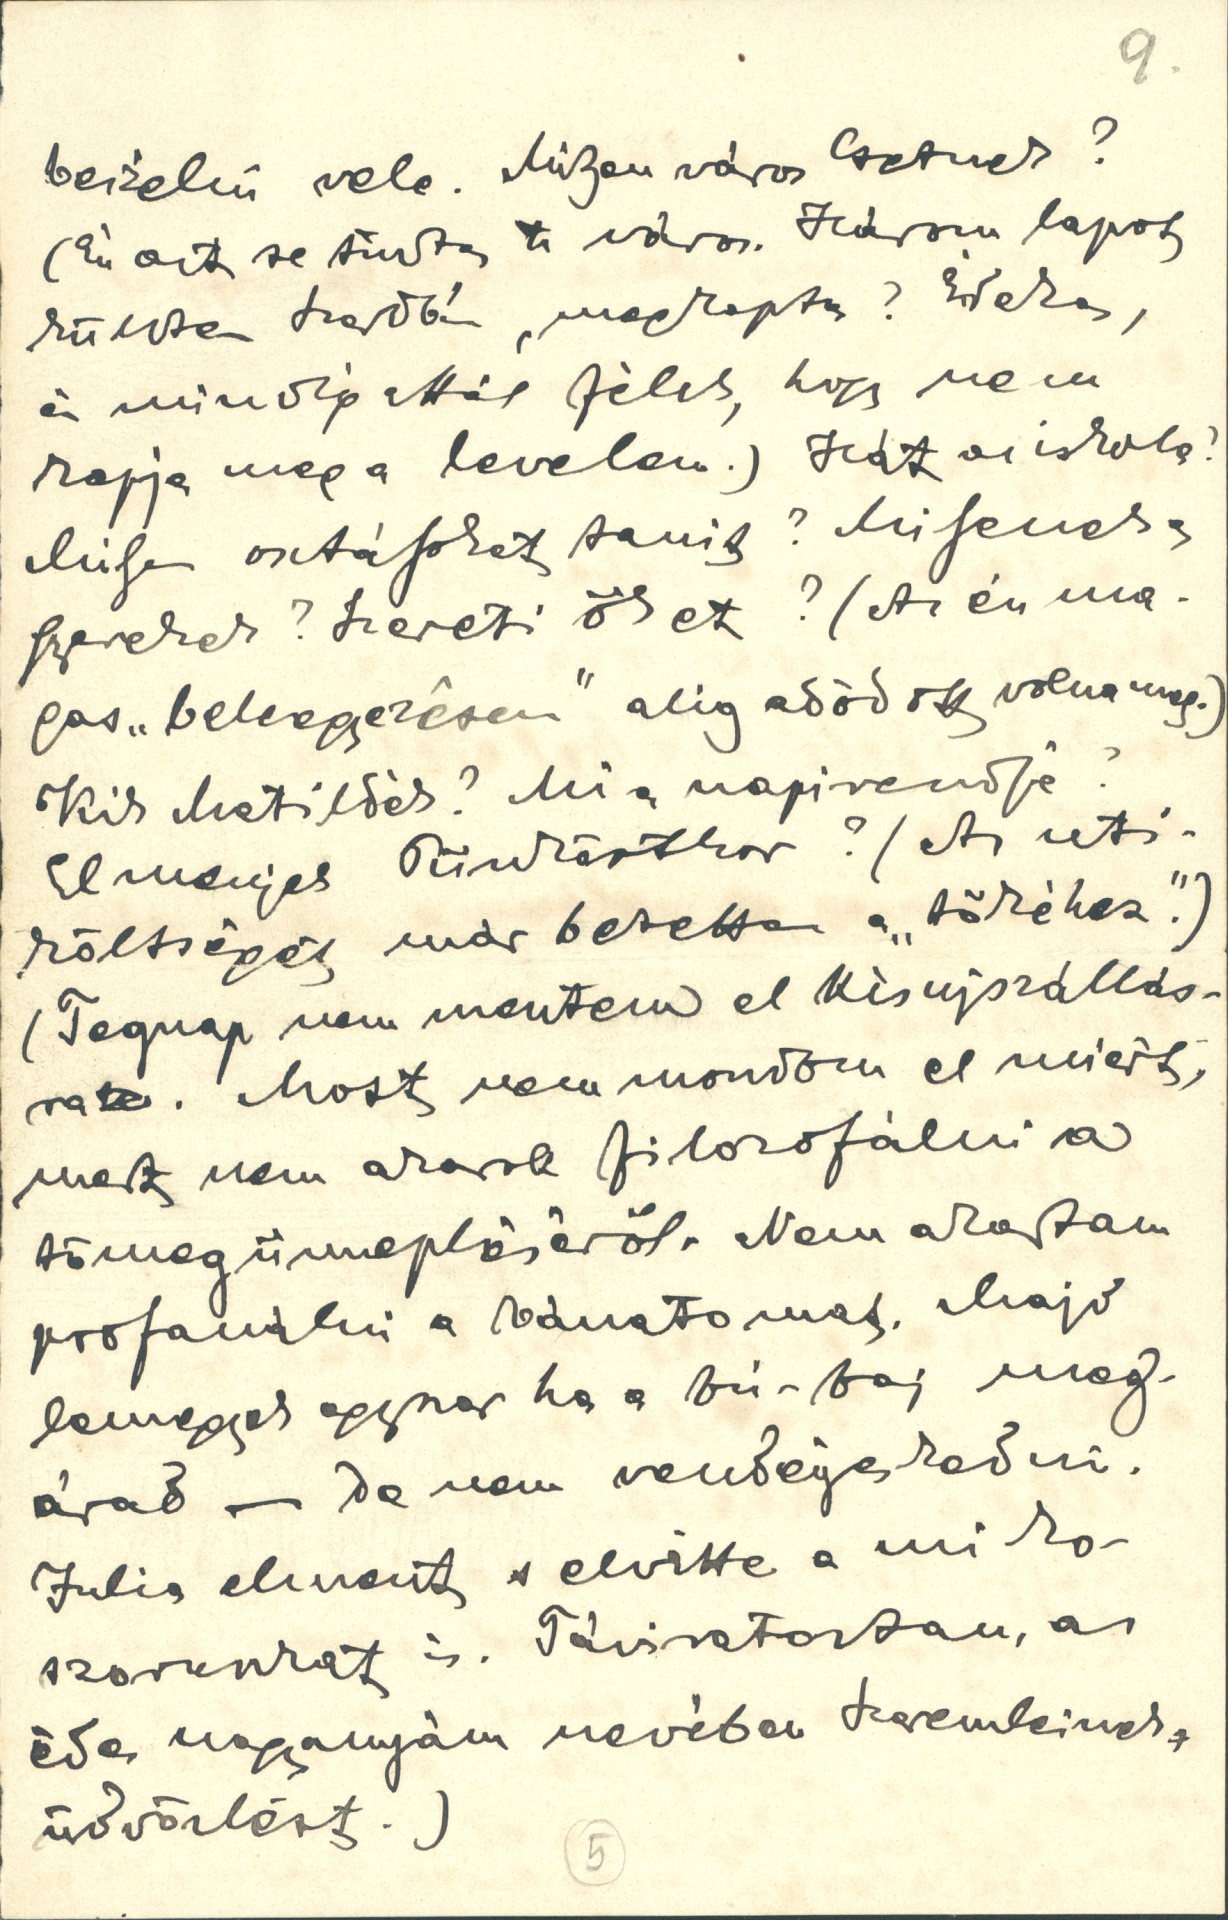 9.
beszélni vele. Milyen város Csetnek?
(Én azt se tudtam város. Három lapot
küldtem Szerdán, megkapta? Édes,
én mindig attól félek, hogy nem
kapja meg a levelem.) Hát az iskola?
Milyen osztályokat tanit? Milyenek a
gyerekek? Szereti őket? (Az én ma-
gas „beleegyezésem” alig adódott volna meg.)
Kis Matildék? Mi a napirendje?
Elmenjek Pünköstkor? (Az uti-
költséget már betettem a „tőkéhez”.)
(Tegnap nem mentem el Kisujszállás-
ra. Most nem mondom el miért,
mert nem akarok filozofálni a
tömeg ünnepléséről. Nem akartam
profanálni a bánatomat. Majd
lemegyek egyszer ha a bú-baj meg-
árad — de nem vendégeskedni.
Julia elment s elvitte a mi ko-
szorunkat is. Táviratoztam, az
édes nagyanyám nevében
üdvözlést.)
5